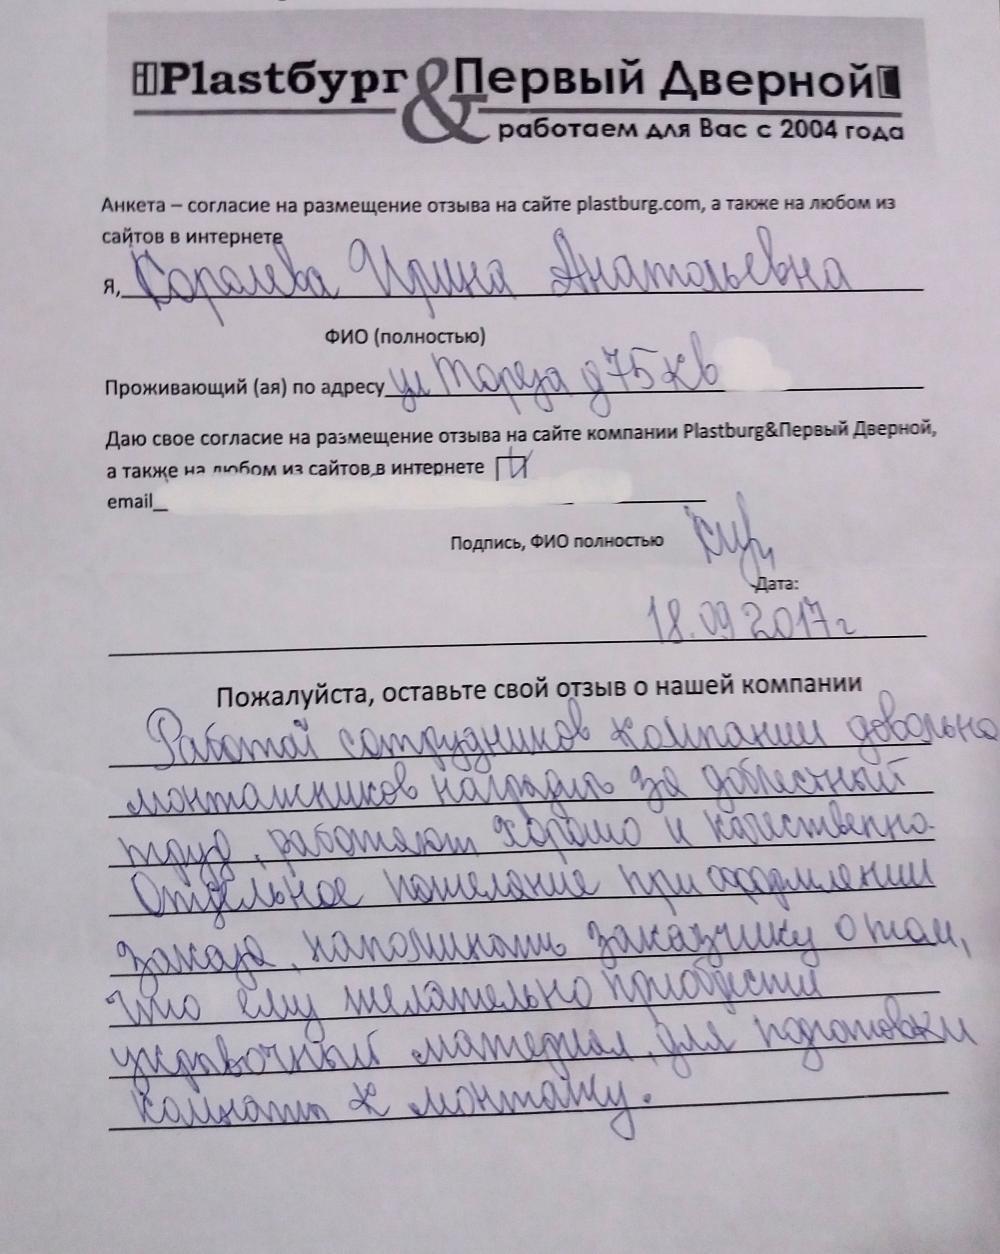 Plastбург & Первый Дверной
работаем для Вас с 2004 года
Анкета – согласие на размещение отзыва на сайте plastburg.com, а также на любом из
сайтов в интернете
Я, Королева Ирина Анатольевна
ФИО (полностью)
Проживающий (ая) по адресу ул Тореза д 75 кв
Даю свое согласие на размещение отзыва на сайте компании Plastburg&Первый Дверной,
а также на любом из сайтов в интернете
email_
Подпись, ФИО полностью
Дата:
18.09 2017 г
Пожалуйста, оставьте свой отзыв о нашей компании
Работой сотрудников компании довольна
монтажников наградить за доблестный
труд, работают хорошо и качественно.
Отдельное пожелание при оформлении
заказа, напоминать заказчику о том,
что ему желательно приобрести
укрывочный материал, для подготовки
комнаты к монтажу.